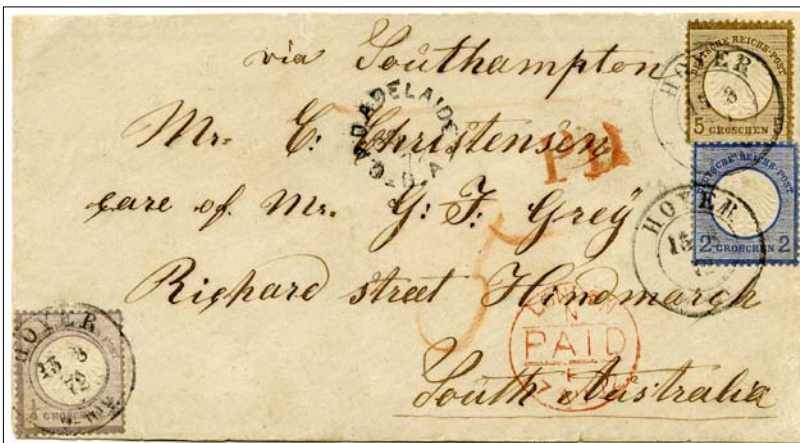 via Southampton
Mr. C: Christensen
care of Mr. G: F: Grey
Richard street Hindmarch
South Australia
DEUTSCHE REICHS-POST
5 GROSCHEN
DEUTSCHE REICHS-POST
2 GROSCHEN 2
HOYER
HOYER
ADELAIDE
PD
5
LONDON
PAID
HOYER
13 3
72
GROSCHEN